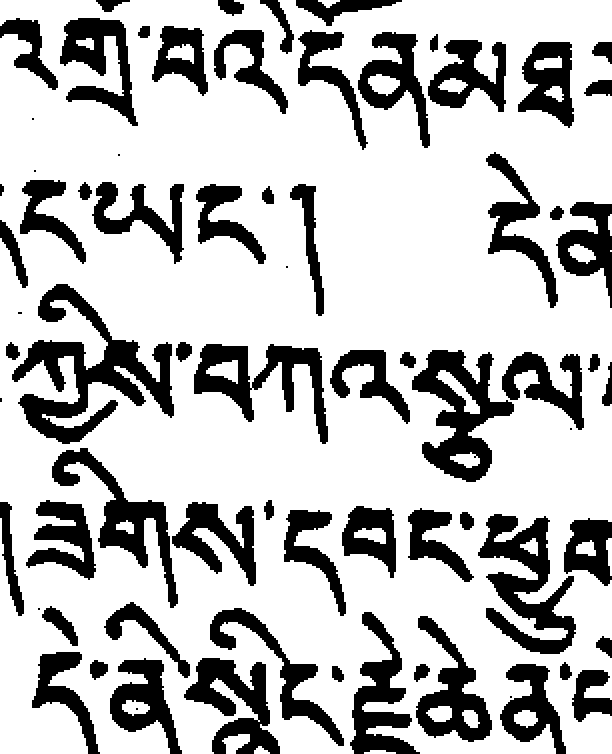 འགྲོ་བའི་དོན་མཐ
ང་ཡང་། དེ་ན
་ཀྱིས་བཀའ་སྩལ་
གཟིགས་དབང་ཕྱུག
དེ་ནི་སྙིང་རྗེ་ཆེན་